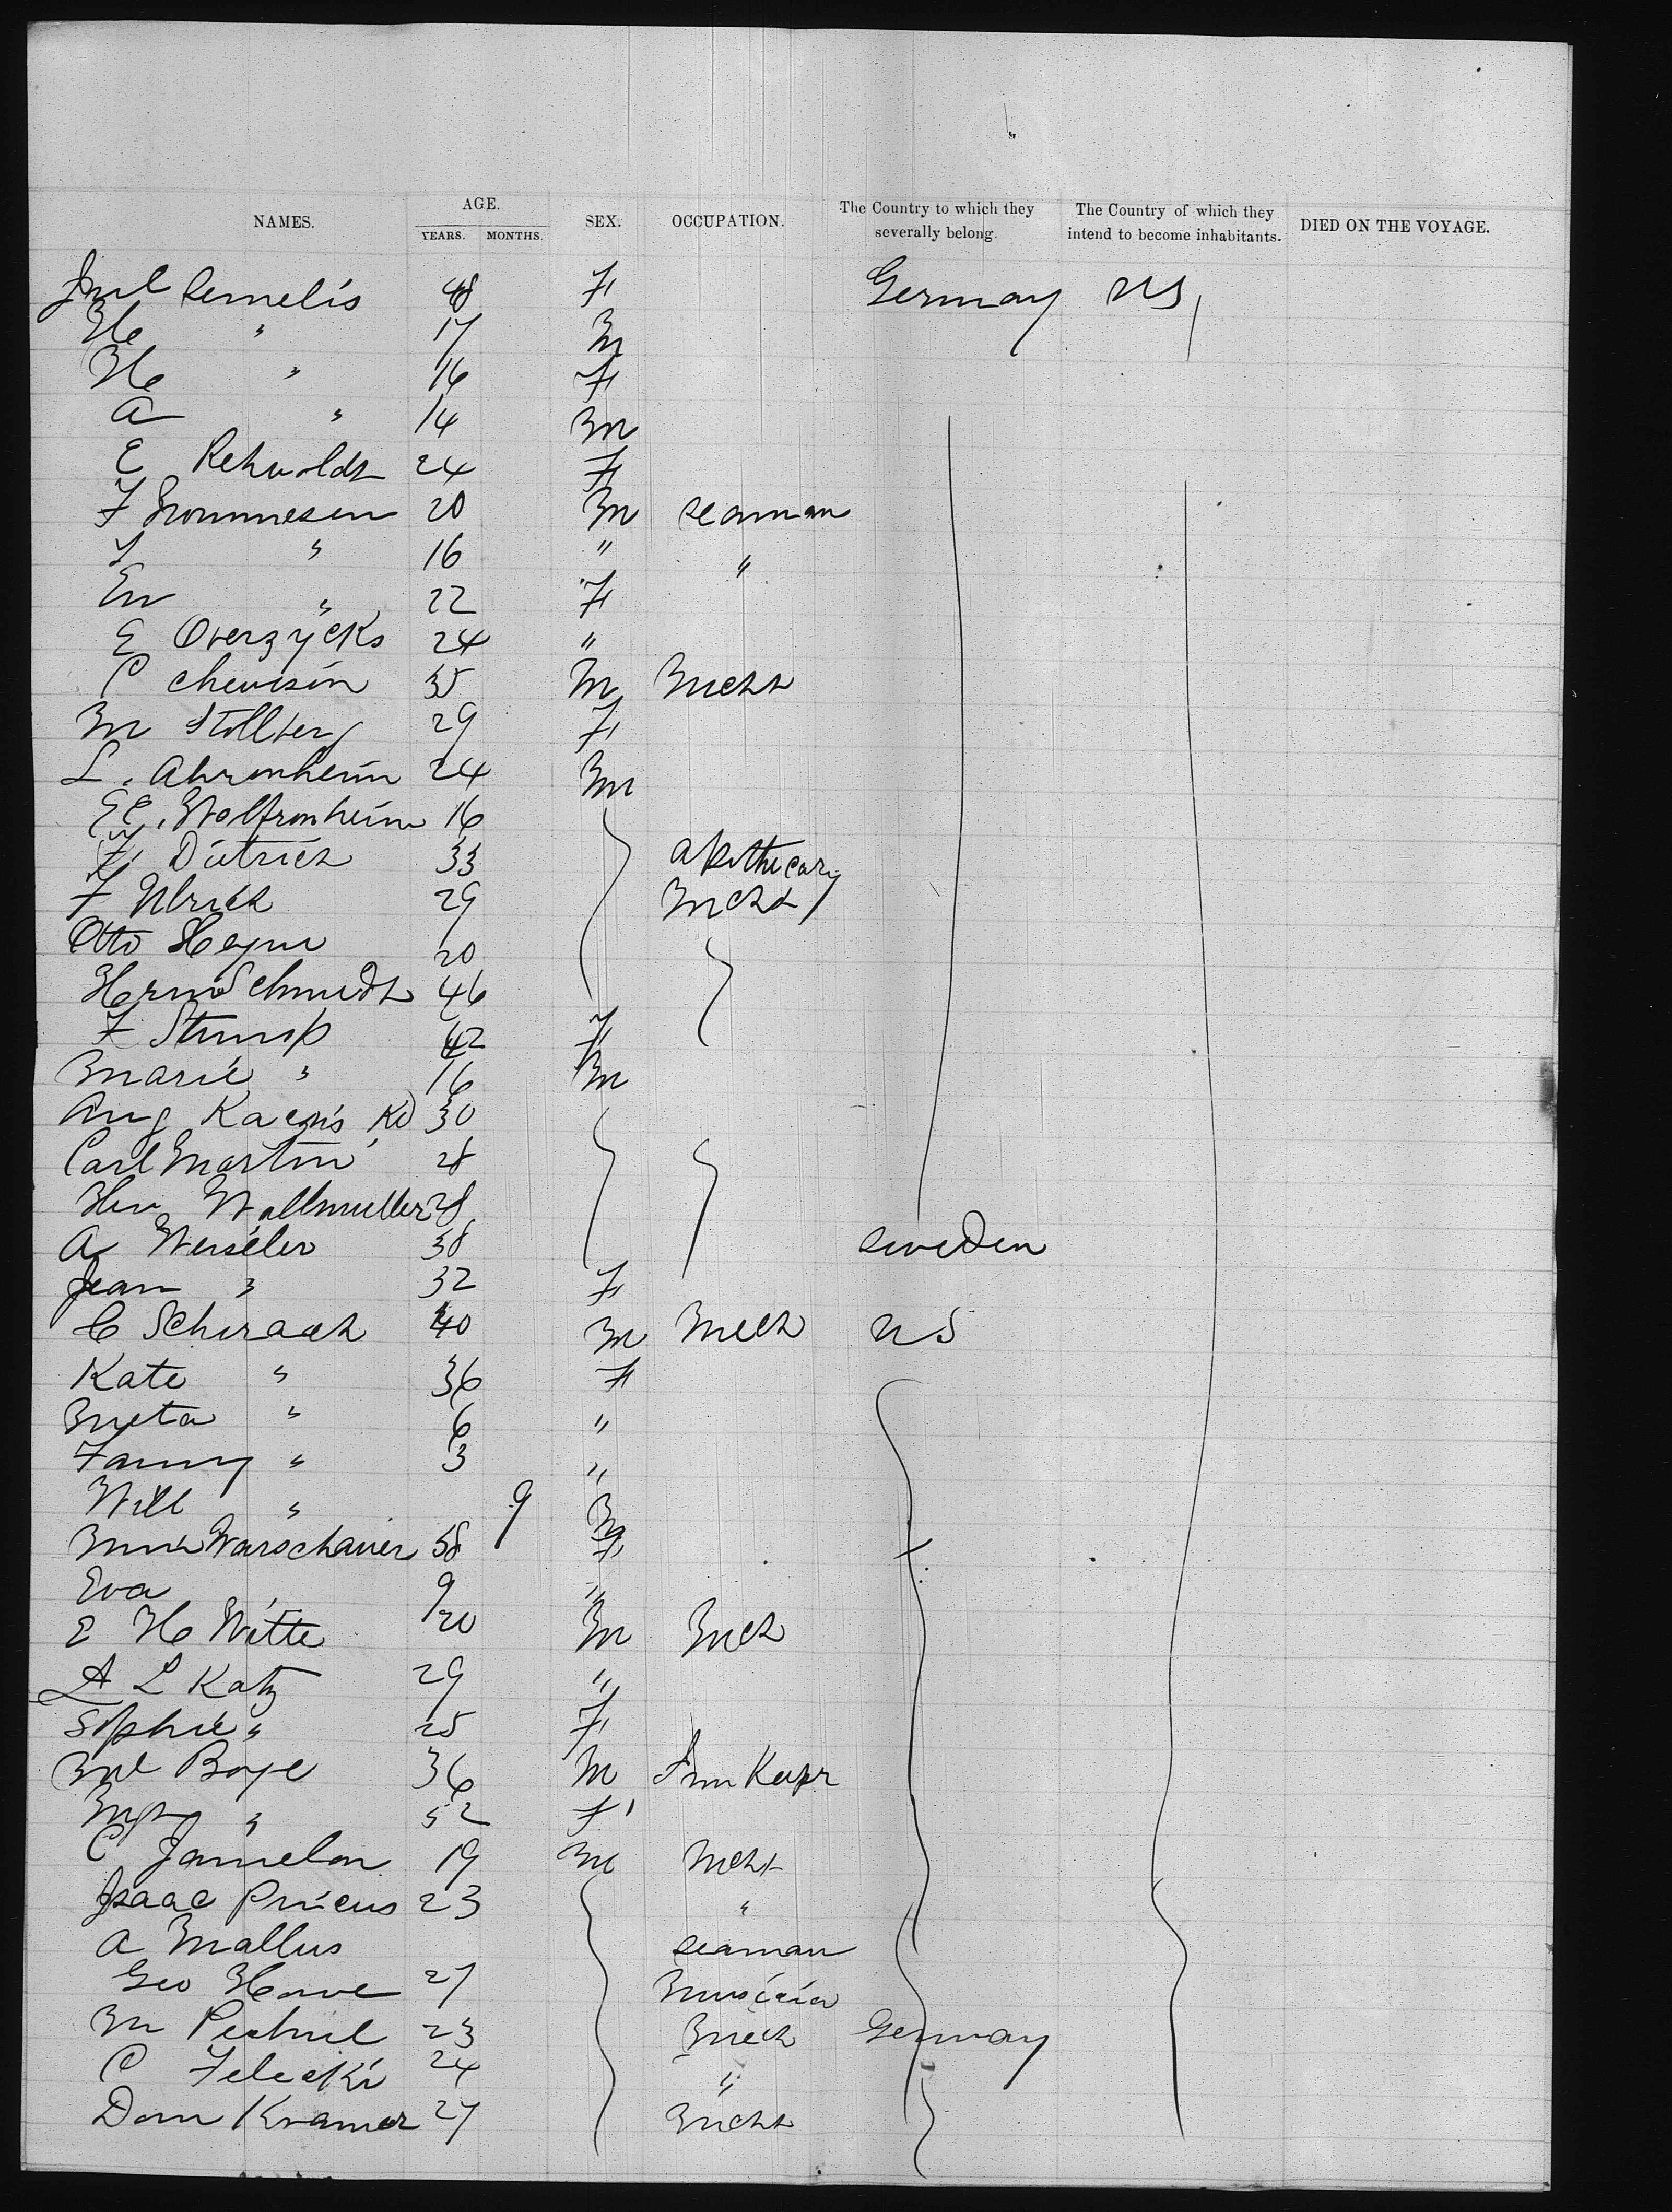 NAMES. AGE. YEARS. MONTHS. SEX. OCCUPATION. The Country to which they severally belong. The Country of which they intend to become inhabitants. DIED ON THE VOYAGE.
48 F Germany US,
" 17 M
" 16 F
A " 14 M
E Rehwoldt 24 F
F 20 M seaman
" 16 " "
Em " 22 F
E Overzycks 24 "
C 35 M Mcht
M Stollberg 29 F
L. Ahronheim 24 M
16
F. Dietrich 33 apothecary
F Ulrich 29 Mcht
Otto Heyne 20
Herm Schmidt 46
F Stumpf 42 F
Marie " 16 M
Aug 30
Carl Martin 28
Hen Wallmuller 28
A 38 Sweden
Jean " 32 F
C Schurach 40 M Mech US
Kate " 36 F
Meta " 6 "
Fanny " 3 "
Will " 9 M
Warschauer 58 F
Eva 9 "
E H Witte 20 M Mch
A L Katz 29 "
Sophie " 25 F
Boye 36 M
" 52 F
C Jamelon 19 M Mcht
Isaac Princus 23 "
A Mallus seaman
Geo 27 Musicia
M 23 Mech Germany
C Feleski 24 "
Dom Kramer 27 Mcht